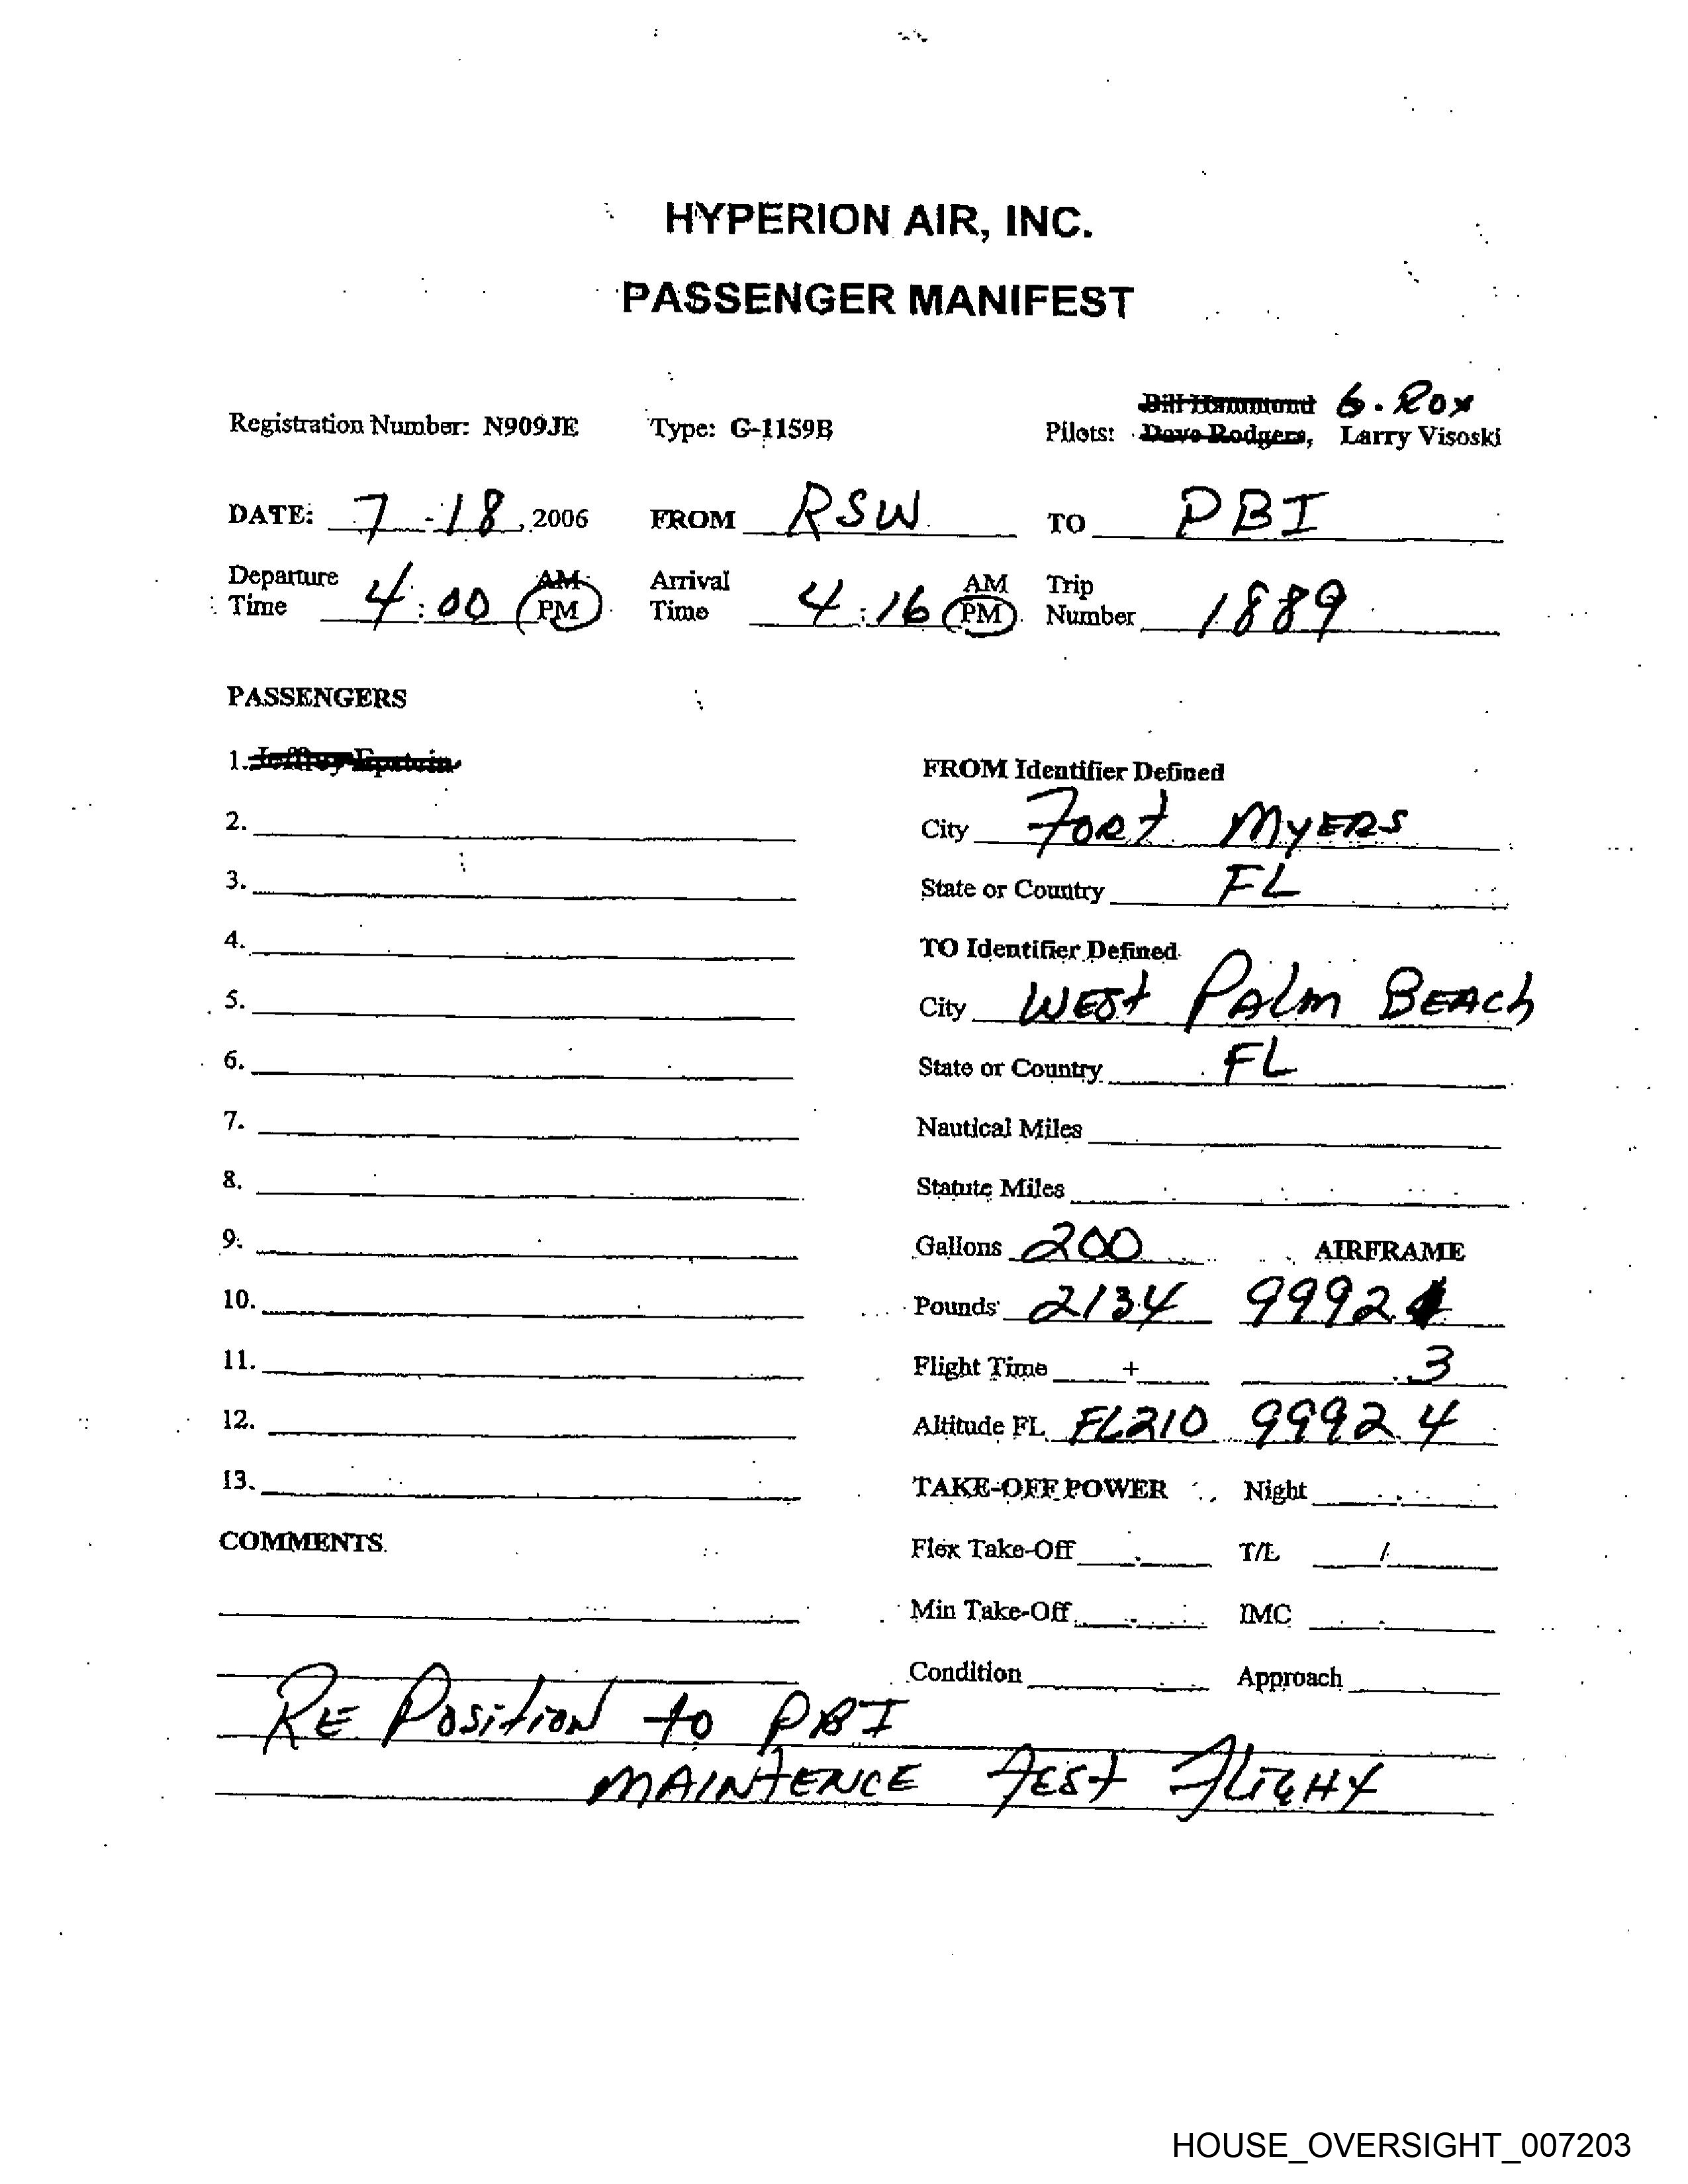 HYPERION AIR, INC.
PASSENGER MANIFEST
Bill Hammond G. Rox
Registration Number: N909JE Type: G-1159B Pilots: Dave Rodgers, Larry Visoski
DATE: 7-18, 2006 FROM RSW TO PBI
Departure Time 4:00 AM PM Arrival Time 4:16 AM PM Trip Number 1889
PASSENGERS
1. Jeffrey Epstein
FROM Identifier Defined
2.
City FORT MYERS
3.
State or Country FL
4.
TO Identifier Defined
5.
City WEST PALM BEACH
6.
State or Country FL
7.
Nautical Miles
8.
Statute Miles
9.
Gallons 200 AIRFRAME
10.
Pounds 2134 9992.1
11.
Flight Time + .3
12.
Altitude FL FL210 9992.4
13.
TAKE-OFF POWER Night
COMMENTS
Flex Take-Off T/L /
Min Take-Off IMC
Condition Approach
RE POSITION to PBI
MAINTENCE TEST FLIGHT
HOUSE_OVERSIGHT_007203